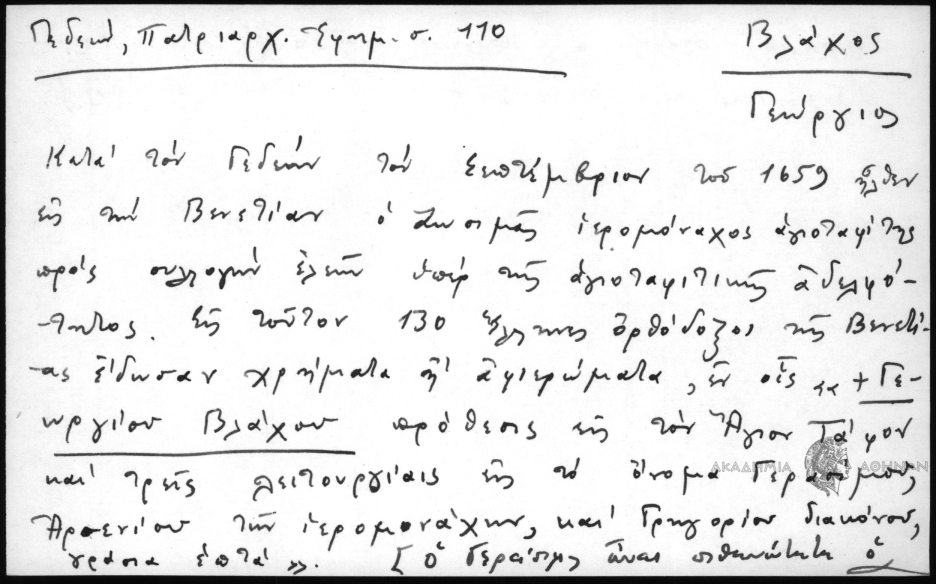 Γεδεών, Πατριαρχ. Έφημ. σ. 110
Βλάχος
Γεώργιος
Κατά τόν Γεδεών τόν Σεπτέμβριον τοῦ 1659 ἦλθεν
εἰς τήν Βενετίαν ὁ Ζωσιμᾶς ἱερομόναχος ἁγιοταφίτης
πρός συλλογήν ἐλεῶν ὑπέρ τῆς ἁγιοταφιτικῆς ἀδελφό-
-τητος. Εἰς τοῦτον 130 ἕλληνες ὀρθόδοξοι τῆς Βενετί-
-ας ἔδωσαν χρήματα ἤ ἀφιερώματα, ἐν οἷς «+ Γε-
ωργίου Βλάχου πρόθεσις εἰς τόν Ἅγιον Τάφον
ΑΚΑΔΗΜΙΑ ΑΘΗΝΩΝ
καί τρεῖς λειτουργίαις εἰς τό ὄνομα Γερασίμου,
Ἀρσενίου τῶν ἱερομονάχων, καί Γρηγορίου διακόνου,
γρόσια ἑπτά». [ὁ Γεράσιμος εἶναι πιθανώτατα ὁ